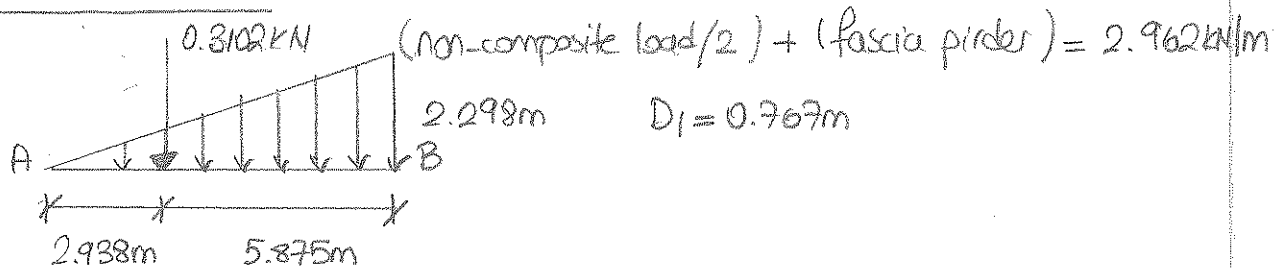 0.3102kN (non-composite load/2) + (fascia pirder) = 2.962kN/m
2.298m D1 = 0.767m
A B
2.938m 5.875m